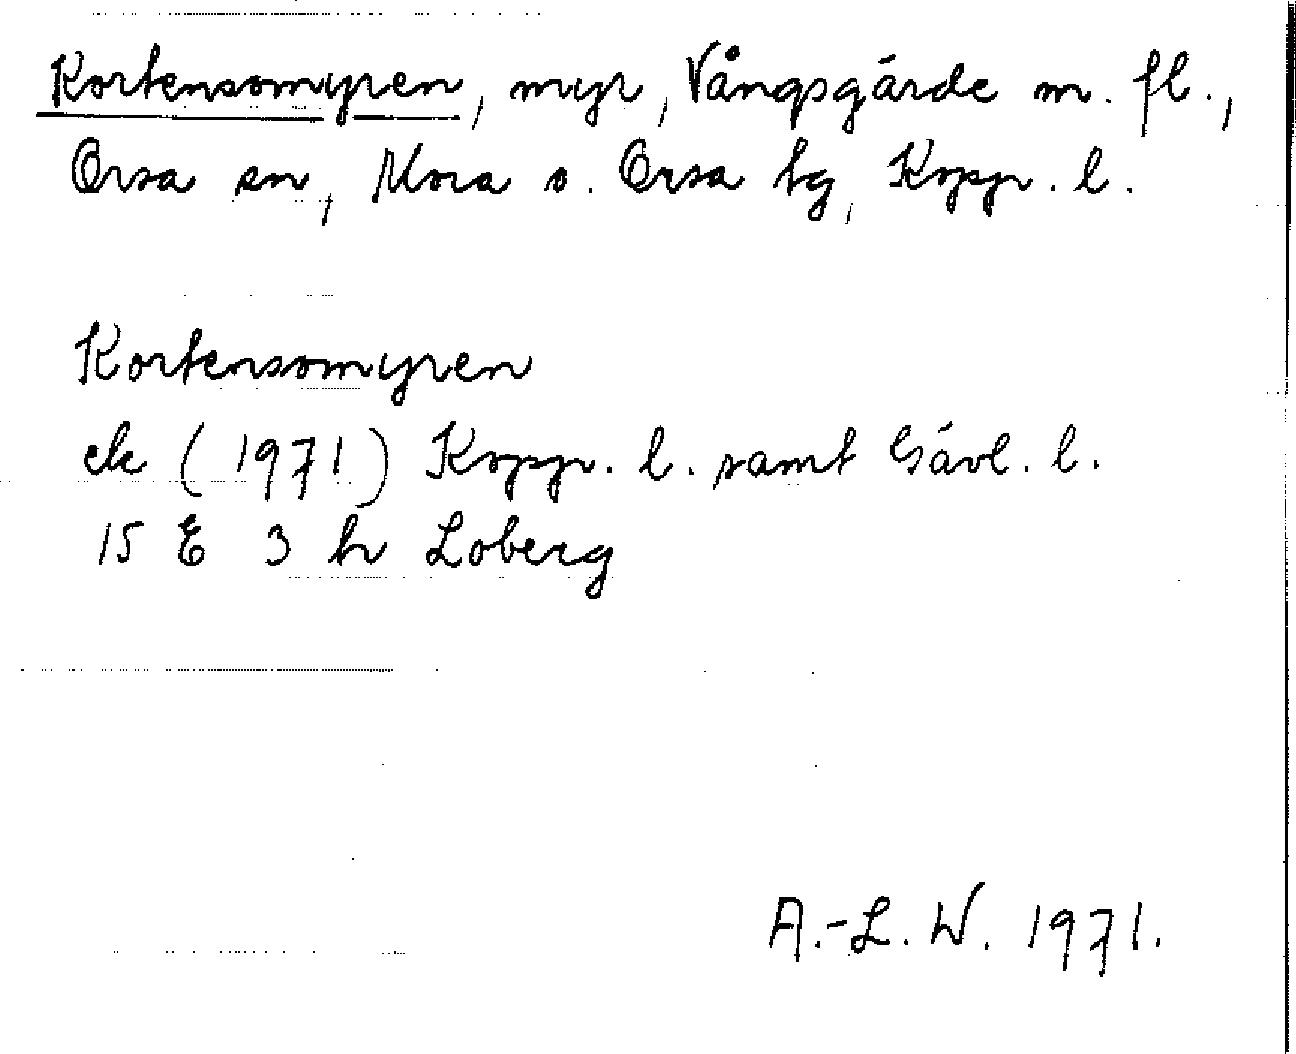 Kortensomyren, myr, Vångsgärde m. fl.,
Orsa sn, Mora o. Orsa tg, Kopp. l.
Kortensomyren
ek (1971) Kopp. l. samt Gävl. l.
15 E 3 h Loberg
A.-L. W. 1971.